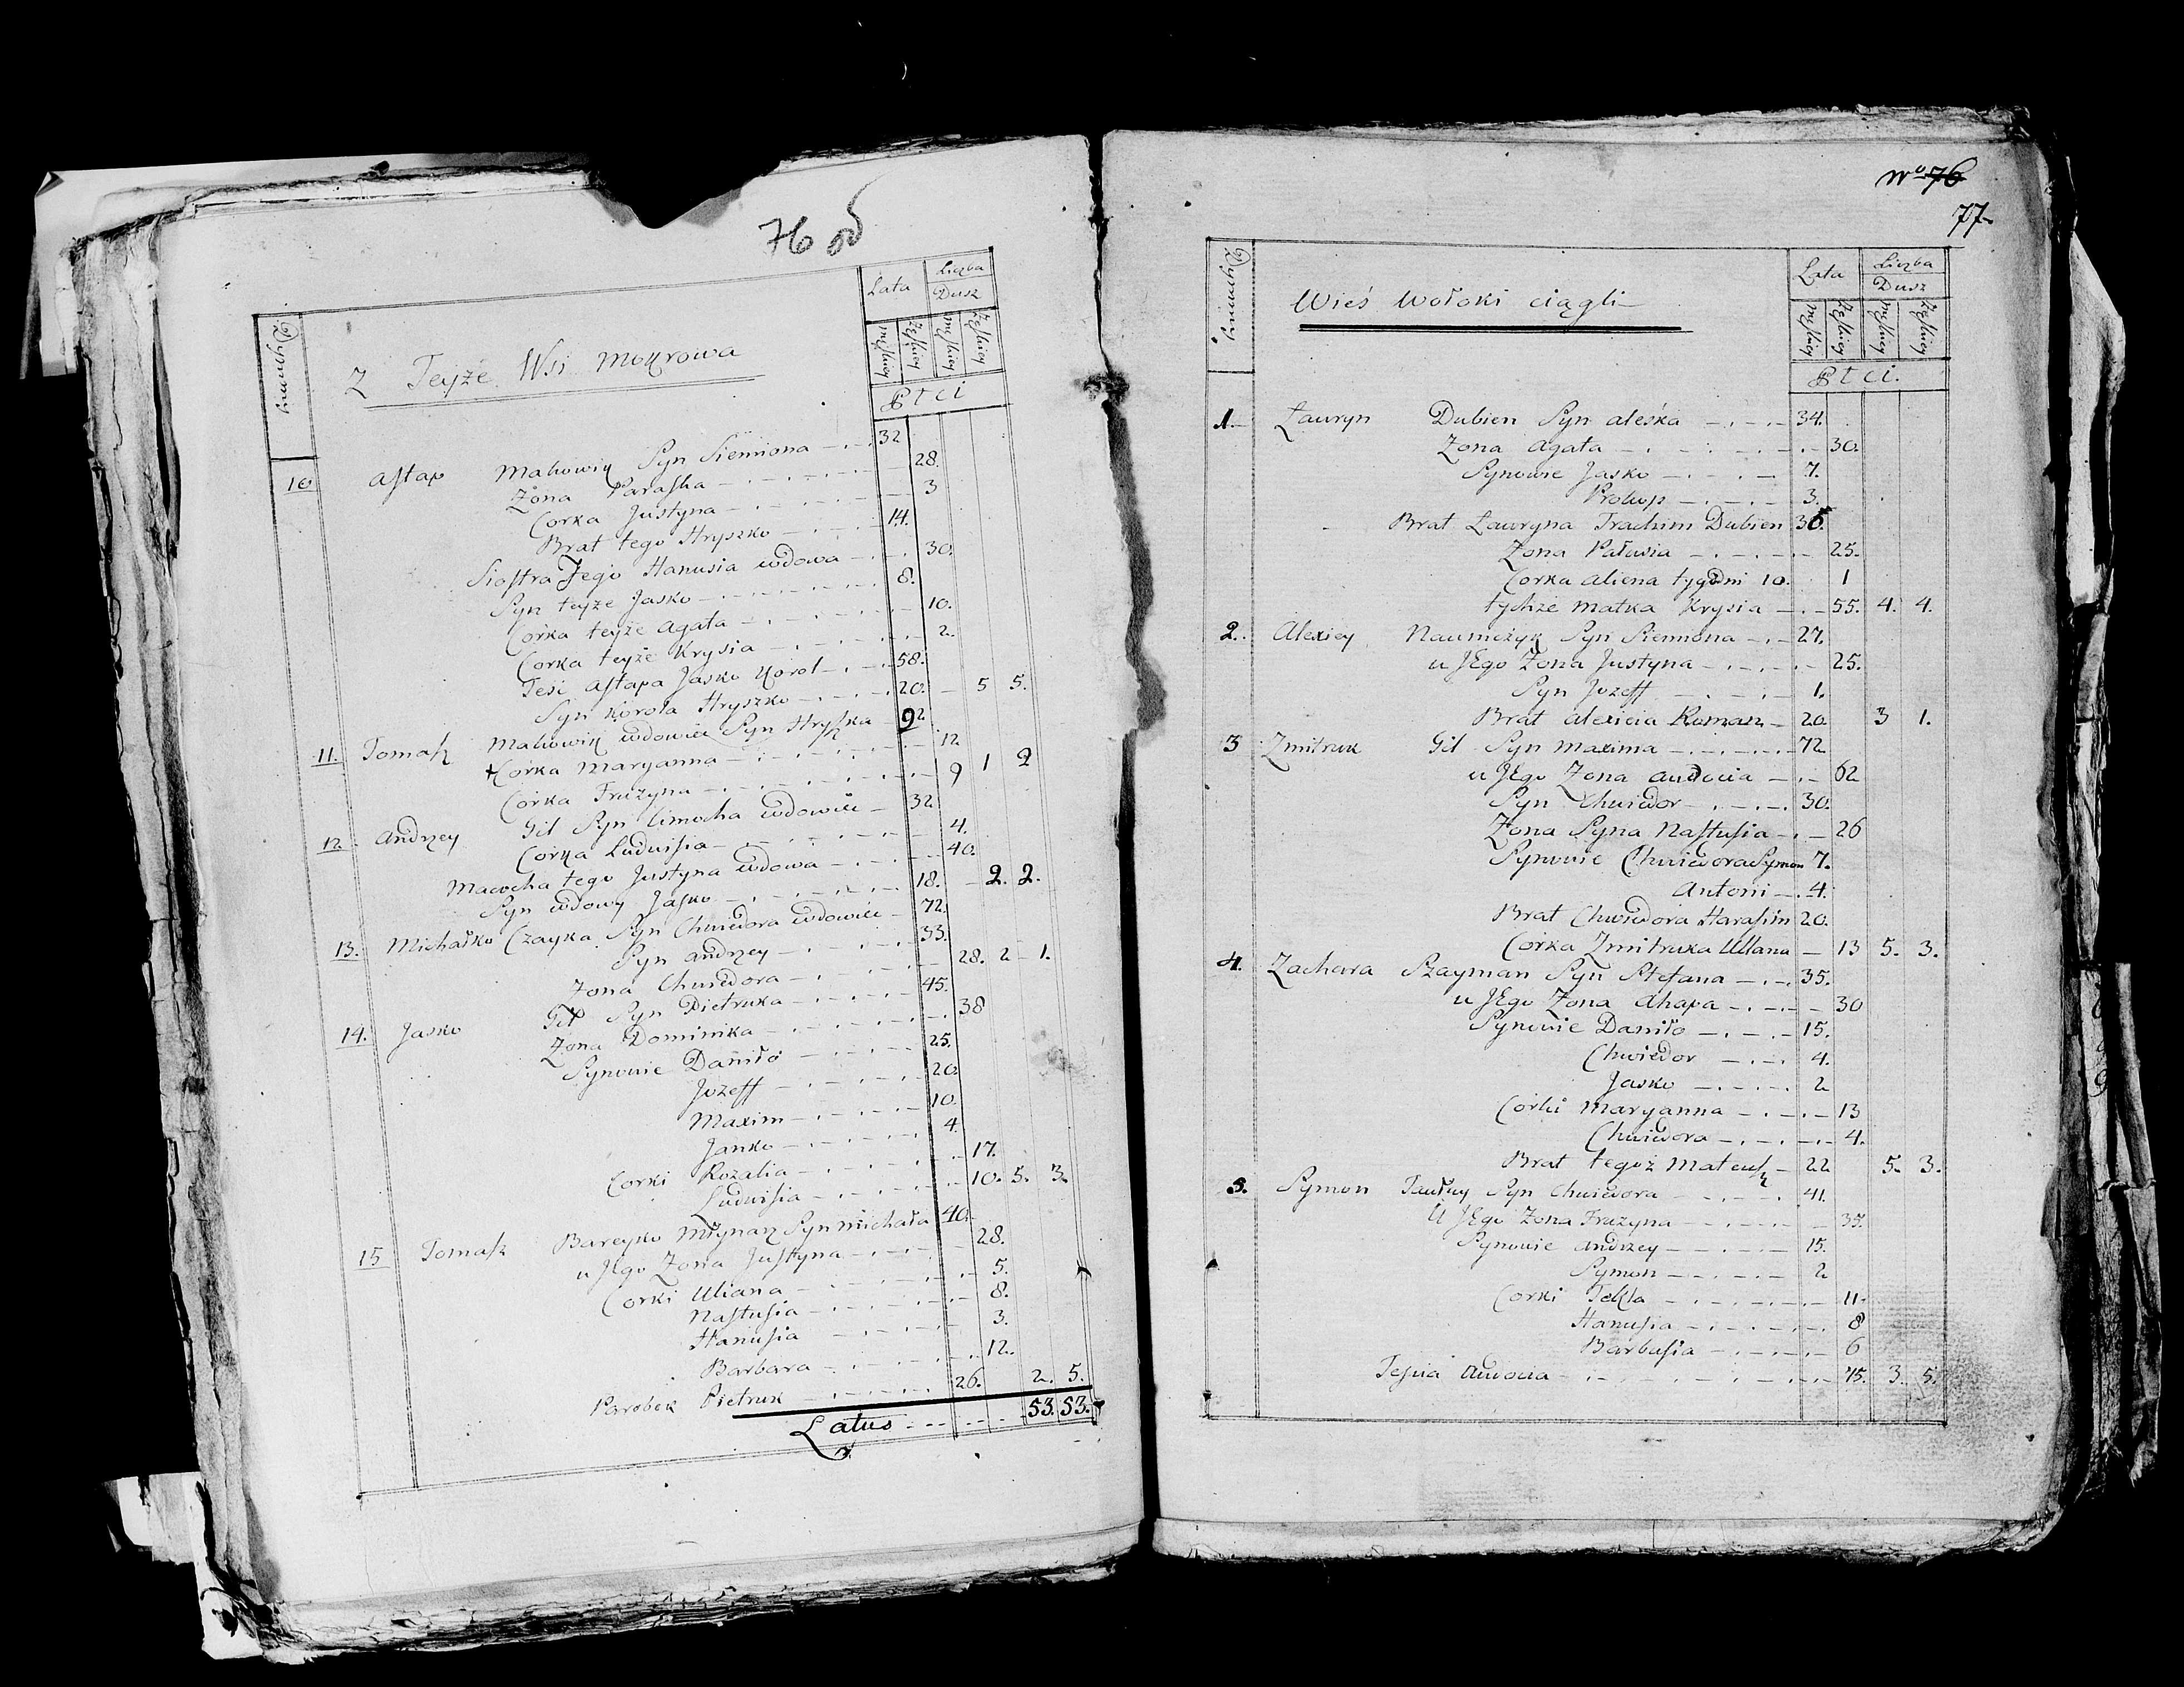 76 об
Dymy
Z Teyże Wsi Mokrowa
Lata
Liczba Dusz
męskiey
żęskiey
męskiey
żęskiey
Płci
10 Astap Makowik Syn Siemiona 32
Żona Paraska 28.
Corka Justyna 3
Brat tego Hryszko 14.
Siostra Jego Hanusia wdowa 30.
Syn teyże Jasko 8.
Corka teyże Agata 10.
Corka teyże Krysia 2.
Teść Astapa Jasko Korol 58.
Syn Korola Hryszko 20. 5 5.
11. Tomasz Makowik wdowiec Syn Hryszka 92
Corka Maryanna 12
Corka Fruzyna 9 1 2
12. Andrzey Gil Syn Cimocha wdowiec 32
Corka Ludwisia 4.
Macocha tego Justyna wdowa 40.
Syn wdowy Jasko 18. 2. 2.
13. Michałko Czayka Syn Chwiedora wdowiec 72.
Syn Andrzey 33.
Żona Chwiedora 28. 2 1.
14. Jasko Gil Syn Pietruka 45.
Żona Dominika 38
Synowie Daniło 25.
Jozeff 20.
Maxim 10.
Janko 4.
Corki Rozalia 17.
Ludwisia 10. 5. 3.
15 Tomasz Bareyko Młynarz Syn Michała 40.
u Jego Żona Justyna 28.
Corki Uliana 5.
Nastusia 8.
Hanusia 3.
Barbara 12.
Parobek Pietruk 26. 2. 5.
Latus 53. 53.
No 76
77
Dymy
Wieś Wołoki ciągli
Lata
Liczba Dusz
męskiey
żęskiey
męskiey
żęskiey
Płci.
1. Lauryn Dubien Syn Aleśka 34.
Żona Agata 30.
Synowie Jasko 7.
Prokop 3.
Brat Lauryna Trachim Dubien 36.
Żona Pałusia 25.
Corka Aliena tygodni 10. 1
tychże Matka Krysia 55. 4. 4.
2. Alexiey Naumczyk Syn Siemiona 27.
u JEgo Żona Justyna 25.
Syn Jozeff 1.
Brat Alexieia Roman 20. 3 1.
3 Zmitruk Gil Syn Maxima 72
u JEgo Żona Audocia 62
Syn Chwiedor 30.
Żona Syna Nastusia 26
Synowie Chwiedora Symon 7.
Antoni 4.
Brat Chwiedora Harasim 20.
Corka Zmitruka Ullana 13 5. 3.
4. Zachara Szayman Syn Stefana 35.
u JEgo Żona Ahapa 30
Synowie Daniło 15.
Chwiedor 4.
Jasko 2
Corki Maryanna 13
Chwiedora 4.
Brat tegoż Mateusz 22 5. 3.
5. Symon Tawłuy Syn Chwiedora 41.
U JEgo Żona Fruzyna 35.
Synowie Andrzey 15.
Symon 2
Corki Tekla 11
Hanusia 8
Barbusia 6
Teścia Awdocia 75. 3. 5.